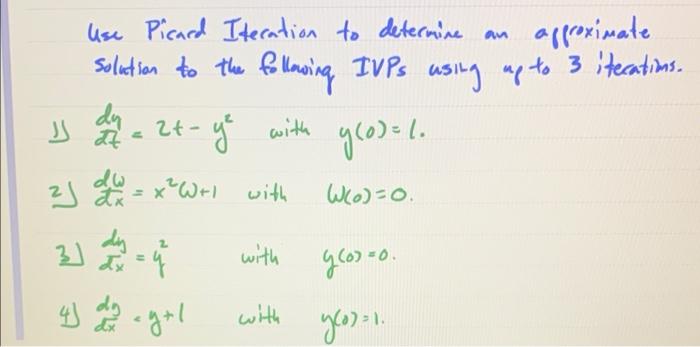 Use Picard Iteration to determine an approximate
Solution to the following IVPs using up to 3 iterations.
1) dy/dt = 2t - y² with y(0) = 1.
2) dw/dx = x²w+1 with w(0)=0.
3) dy/dx = y² with y(0)=0.
4) dy/dx = y+1 with y(0)=1.